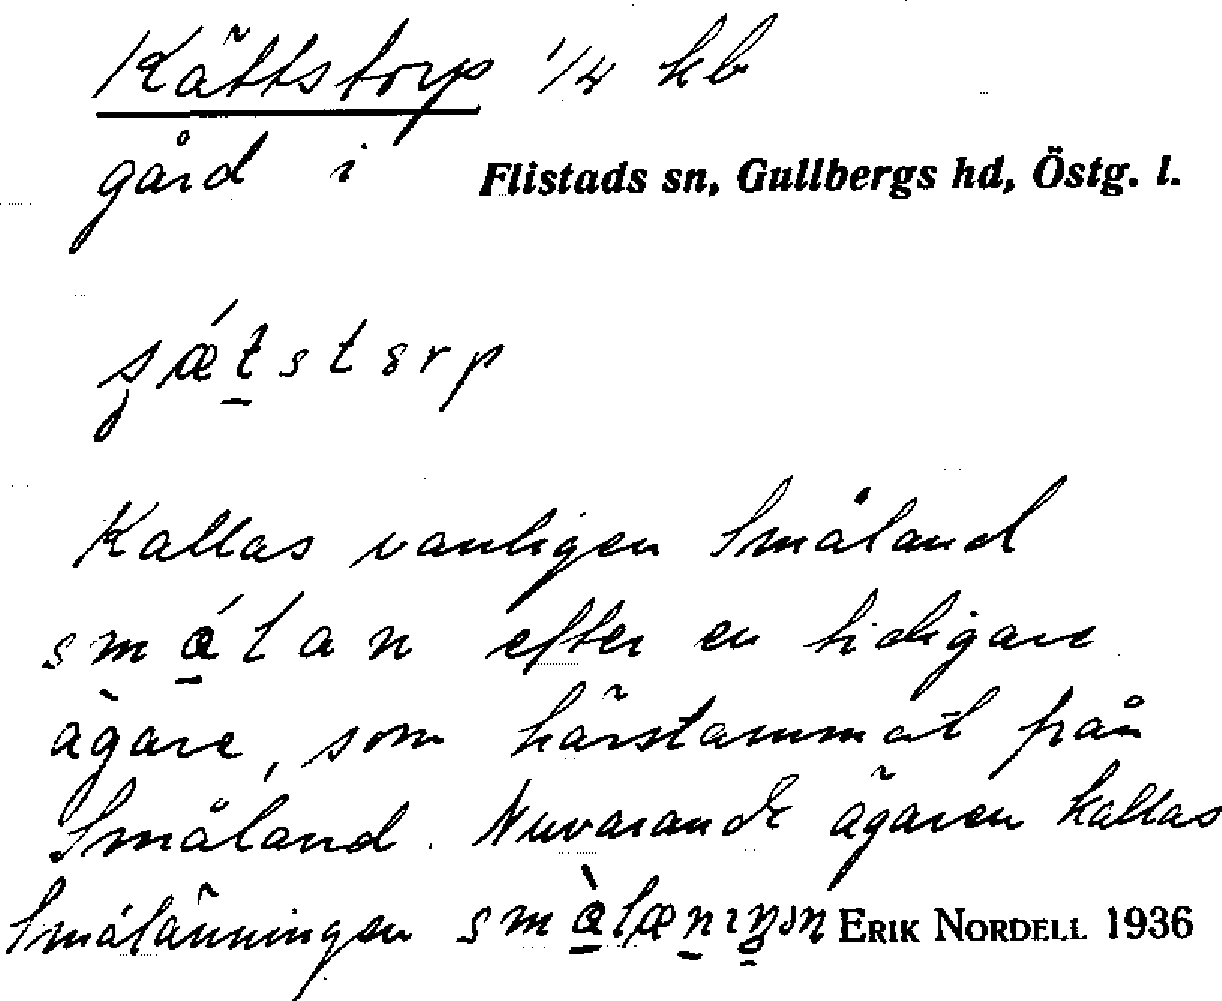 Kättstorp 1/4 kb
gård i Flistads sn, Gullbergs hd, Östg. l.
Kallas vanligen Småland
efter en tidigare
ägare, som härstammat från
Småland. Nuvarande ägaren kallas
Smålänningen ERIK NORDELL 1936